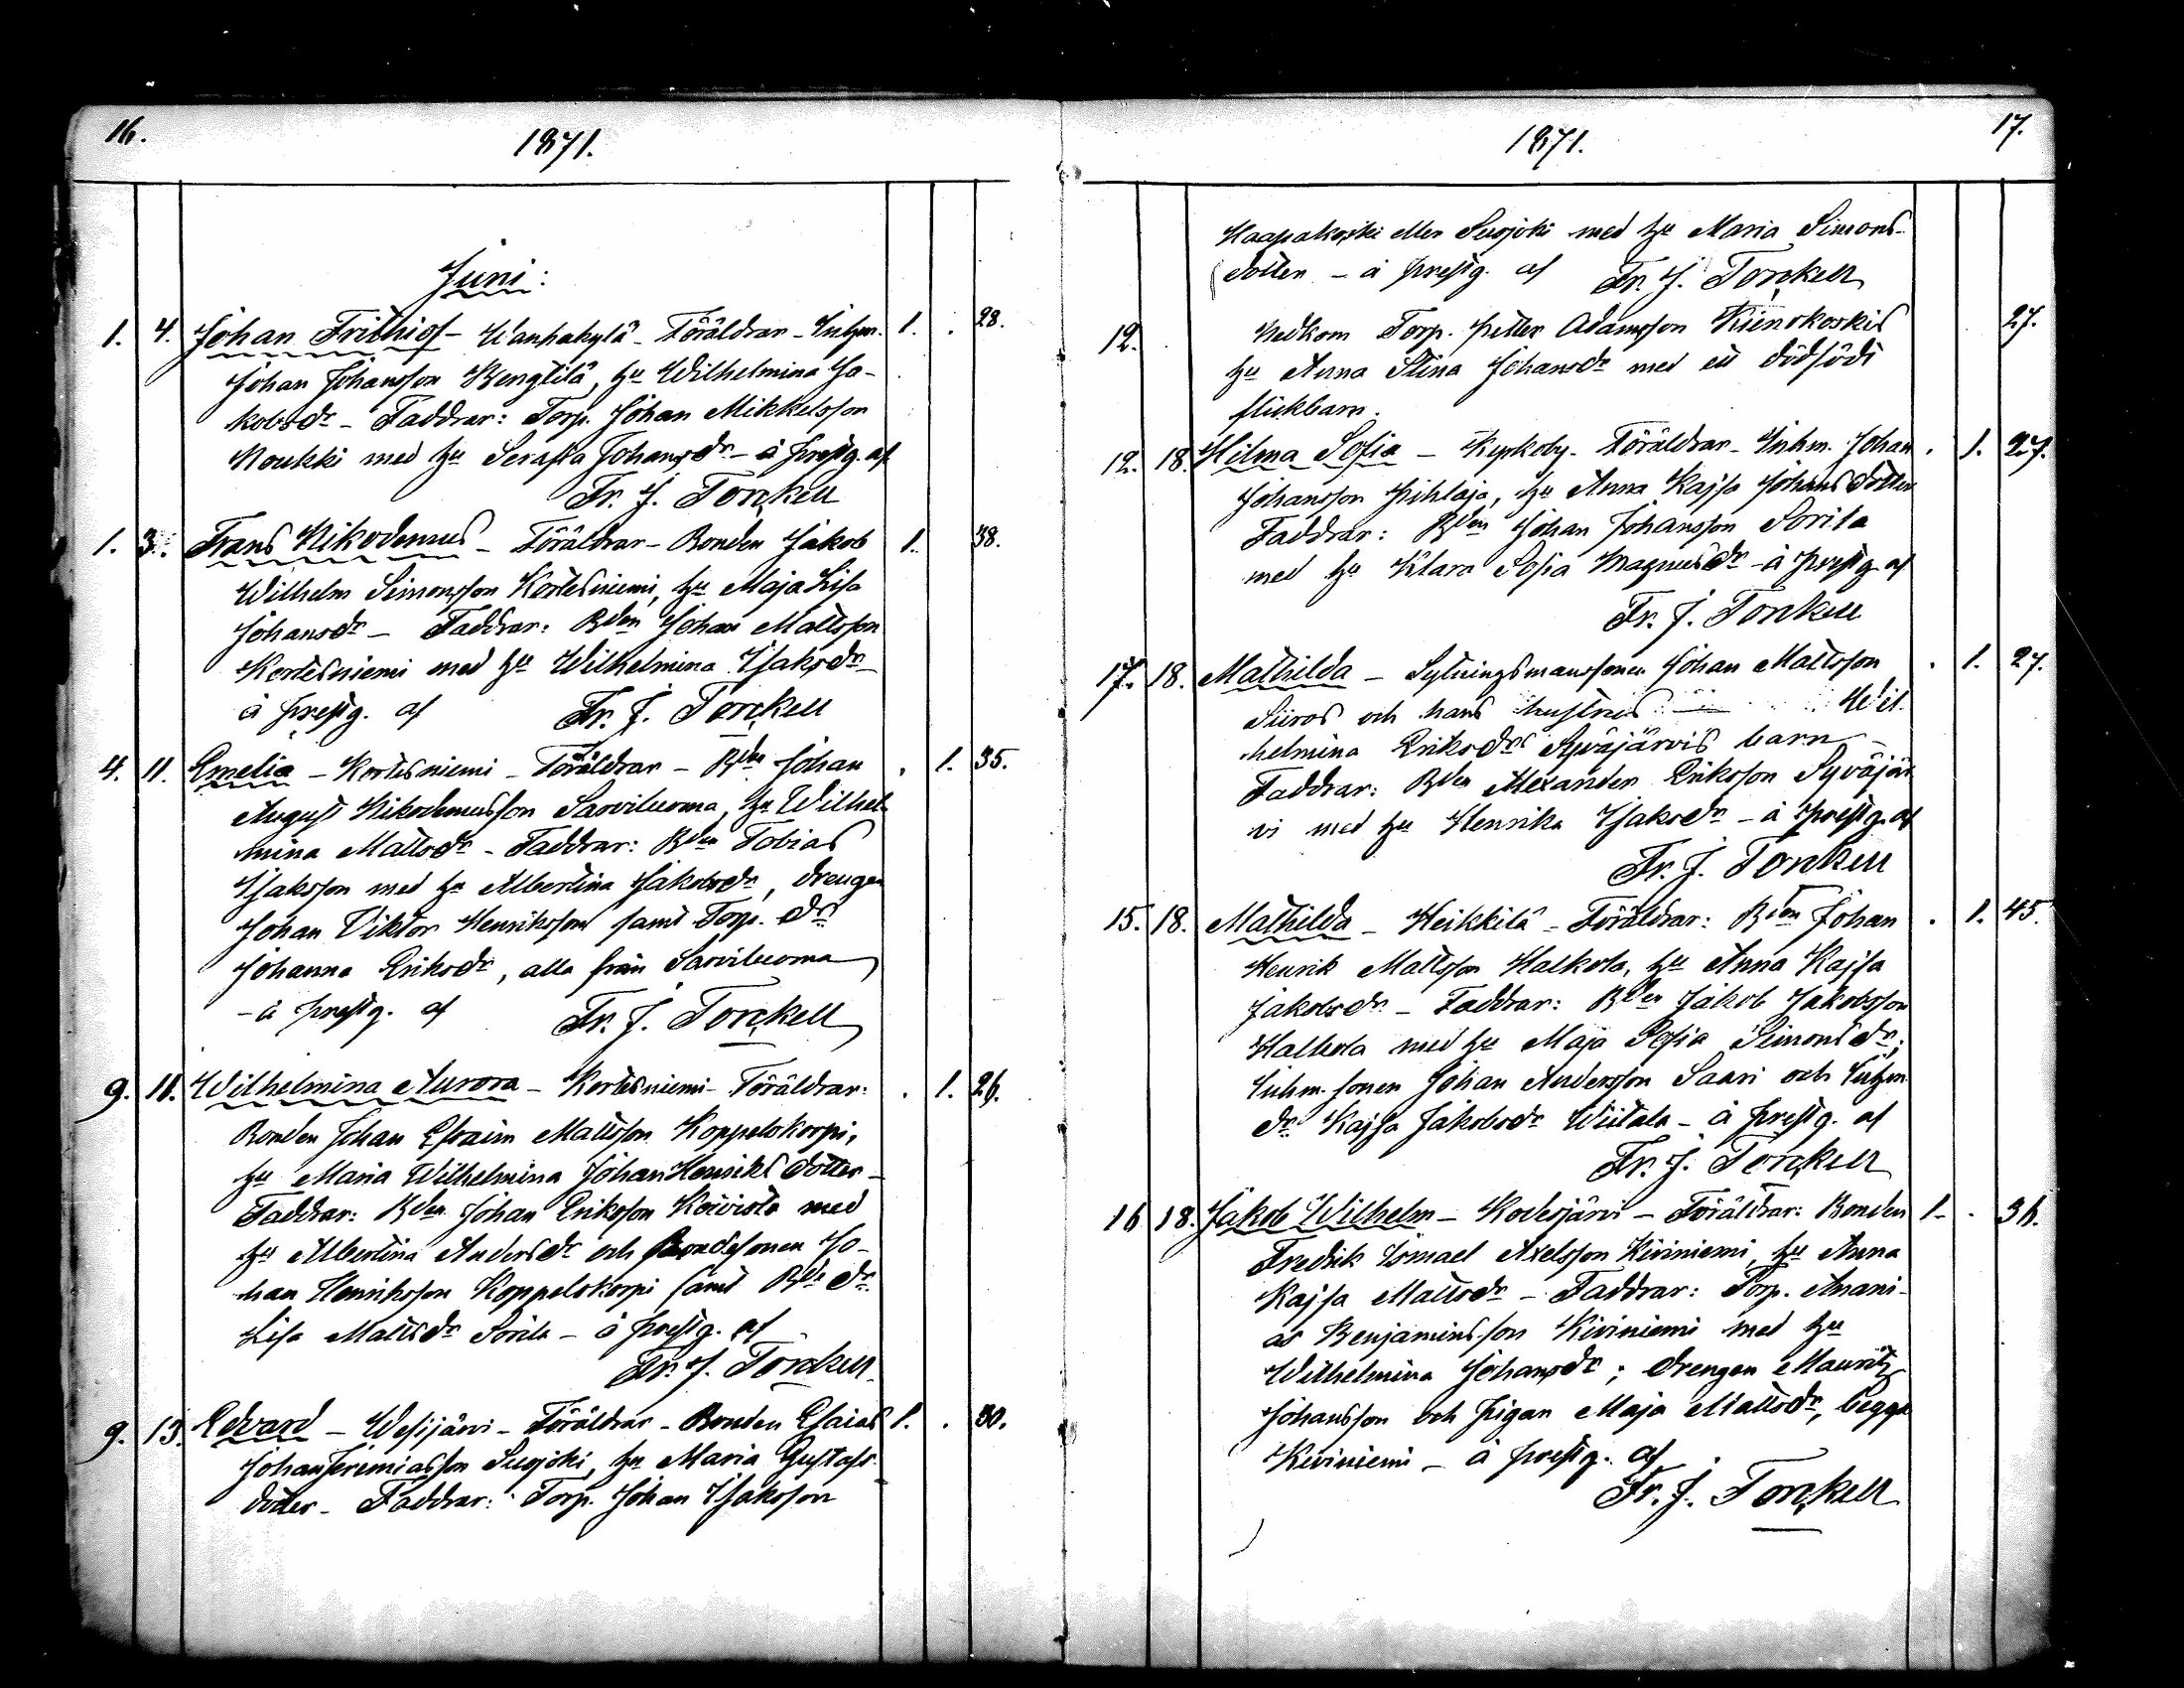 16.
1871.
Juni:
1. 4. Johan Frithiof - Wanhakylä - Föräldrar - Inhm. 1. . 28.
Johan Johansson Bengtilä, hu Wilhelmina Ja-
kobsdr - Faddrar: Torp. Johan Mikkelsson
Koukki med hu Serafia Johansdr - à prestg. af
Fr. J. Torckell
1. 3. Frans Nikodemus - Föräldrar - Bonden Jakob 1. 38.
Wilhelm Simonsson Kortesniemi, hu Maja Lisa
Johansdr - Faddrar: Bden Johan Mattsson
Kortesniemi med hu Wilhelmina Isaksdr -
à prestg. af Fr. J. Torckell
4. 11. Emelia - Kortesniemi - Föräldrar - Bden Johan . 1. 35.
August Nikodemusson Sarviluoma, hu Wilhel-
mina Mattsdr - Faddrar: Bden Tobias
Isaksson med hu Albertina Jakobsdr, drengen
Johan Viktor Henriksson samt Torp. dr
Johanna Eriksdr, alla från Sarviluoma
- à prestg. af Fr. J. Torckell
9. 11. Wilhelmina Aurora - Kortesniemi - Föräldrar: . 1. 26.
Bonden Johan Efraim Mattsson Koppelokorpi,
hu Maria Wilhelmina Johan Henriksdotter -
Faddrar: Bden Johan Eriksson Koivisto med
hu Albertina Andersdr och Bondesonen Jo-
han Henriksson Koppelokorpi samt Bde dr
Lisa Mattsdr Sorila - à prestg. af
Fr. J. Torckell
9. 13. Edvard - Wesijärvi - Föräldrar - Bonden Esaias 1. . 30.
Johan Jeremiasson Suojoki, hu Maria Gustafs-
dotter - Faddrar: Torp. Johan Isaksson
1871.
17.
Haapakoski eller Suojoki med hu Maria Simons-
dotter - à prestg. af Fr. J. Torckell
12. Nedkom Torp. Petter Adamsson Kienokoskis 27.
hu Anna Stina Johansdr med ett dödfödt
flickbarn.
12. 18. Hilma Sofia - Kyrkoby - Föräldrar - Inhm. Johan . 1. 27.
Johansson Pihlaja, hu Anna Kajsa Johansdotter
Faddrar: Bden Johan Johansson Sorila
med hu Klara Sofia Magnusdr - à prestg. af
Fr. J. Torckell
17. 18. Mathilda - Sytningsmanssonen Johan Mattsson . 1. 27.
Siiros och hans hustrus Wil-
helmina Eriksdrs Syväjärvis barn -
Faddrar: Bden Alexander Eriksson Syväjär
vi med hu Henrika Isaksdr - à prestg. af
Fr. J. Torckell
15. 18. Mathilda - Heikkilä - Föräldrar: Bden Johan . 1. 45.
Henrik Mattsson Halkola, hu Anna Kajsa
Jakobsdr - Faddrar: Bden Jakob Jakobsson
Halkola med hu Maja Sofia Simonsdr;
Inhm. sonen Johan Andersson Saari och Inhm.
dr Kajsa Jakobsdr Wiitala - à prestg. af
Fr. J. Torckell
16 18. Jakob Wilhelm - Kodesjärvi - Föräldrar: Bonden 1. . 36.
Fredrik Ismael Axelsson Kiviniemi, hu Anna
Kajsa Mattsdr - Faddrar: Torp. Anani-
as Benjaminsson Kiviniemi med hu
Wilhelmina Johansdr; drengen Mauritz
Johansson och Pigan Maja Mattsdr, begge
Kiviniemi - à prestg. af
Fr. J. Torckell